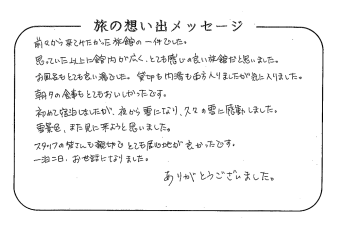 旅の想い出メッセージ
前々から来てみたかった旅館の一件でした。
思っていた以上に館内が広く、とても感じの良い旅館だと思いました。
お風呂もとても良い湯でした。貸切も内湯も両方入りましたが気に入りました。
朝夕の食事もとてもおいしかったです。
初めて宿泊しましたが、夜から雪になり、久々の雪に感動しました。
雪景色、また見に来ようと思いました。
スタッフの皆さんも親切でとても居心地が良かったです。
一泊二日、お世話になりました。
ありがとうございました。